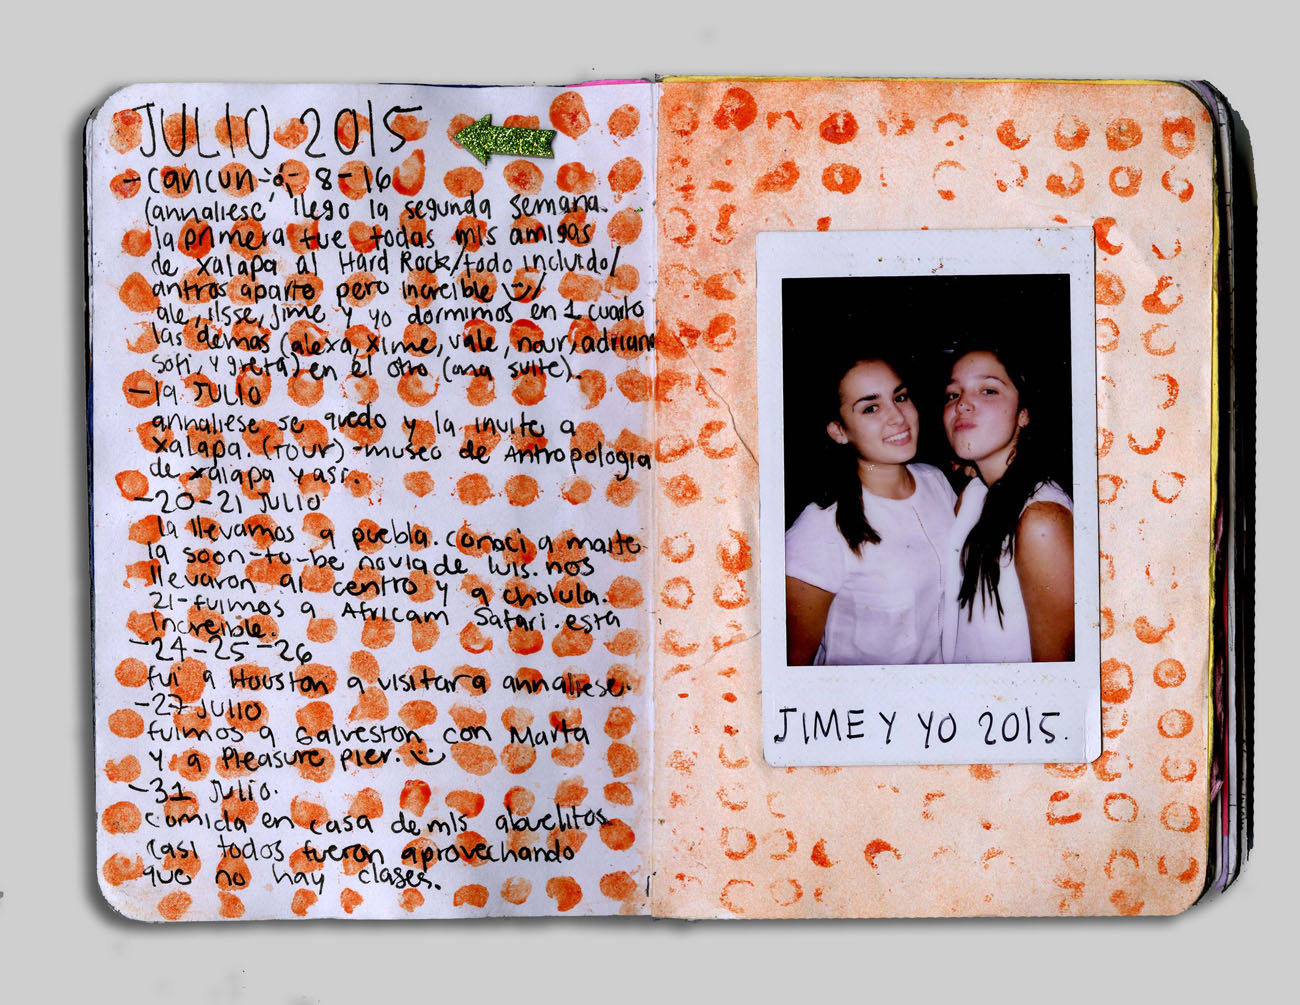 JULIO 2015
- CANCUN - 8-16
(annaliese llego la segunda semana.
la primera fue todas mis amigas
de xalapa al Hard Rock/todo incluido/
antros aparte pero increíble :)/
ale, ilsse, jime y yo dormimos en 1 cuarto
las demas (alexa, xime, vale, nour, adriana
sofi, y greta) en el otro (una suite).
-19 JULIO
annaliese se quedo y la invite a
xalapa. (tour) - museo de Antropologia
de xalapa y asi.
-20-21 JULIO
la llevamos a puebla. conoci a maite
la soon-to-be novia de luis. nos
llevaron al centro y a cholula.
21-fuimos a Africam Safari. esta
increible.
-24-25-26
fui a Houston a visitar a annaliese.
-27 JULIO
fuimos a Galveston con Marta
y a Pleasure pier. :)
-31 JULIO.
comida en casa de mis abuelitos.
casi todos fueron aprovechando
que no hay clases.
JIME Y YO 2015.